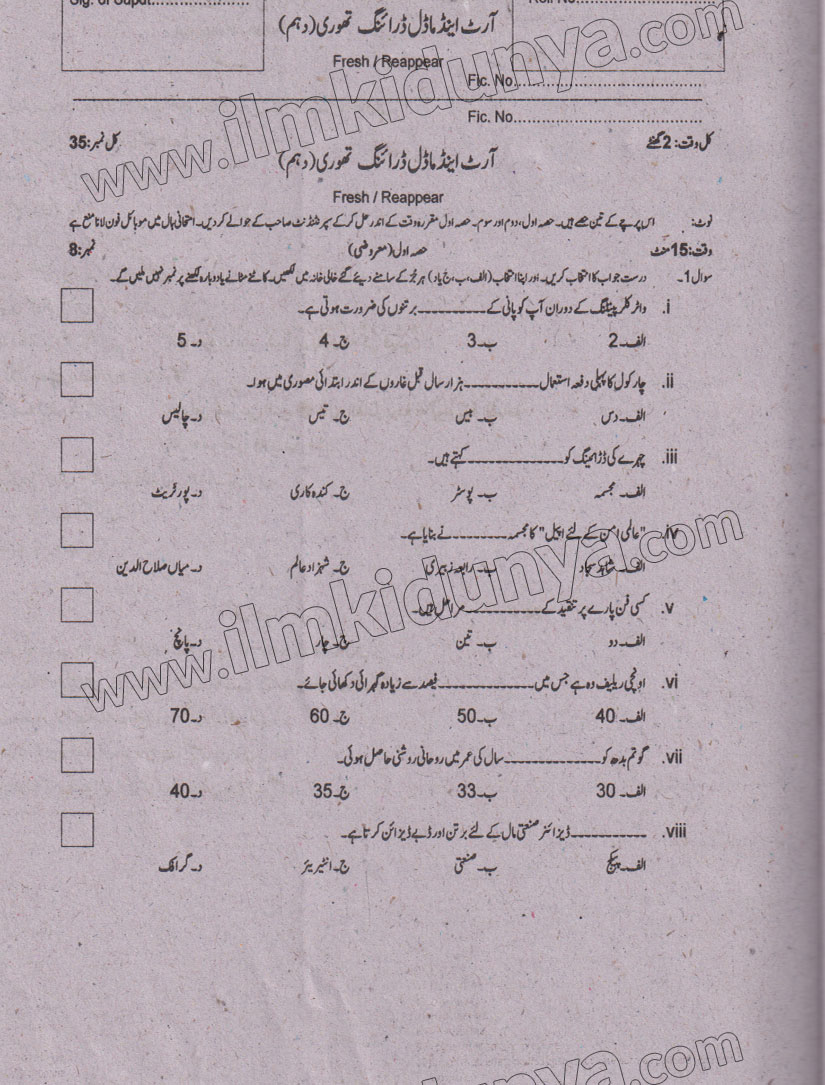 Sig. of Supdt.........................
Roll No..............................
آرٹ اینڈ ماڈل ڈرائنگ تھوری (دہم)
Fresh / Reappear
Fic. No..........................................
Fic. No..........................................
کل وقت: 2 گھنٹے
کل نمبر: 35
آرٹ اینڈ ماڈل ڈرائنگ تھوری (دہم)
Fresh / Reappear
نوٹ: اس پرچے کے تین حصے ہیں۔ حصہ اول، دوم اور سوم۔ حصہ اول مقررہ وقت کے اندر حل کرکے سپرنٹنڈنٹ صاحب کے حوالے کردیں۔ امتحانی ہال میں موبائل فون لانا منع ہے
وقت: 15 منٹ حصہ اول (معروضی) نمبر: 8
سوال 1۔ درست جواب کا انتخاب کریں۔ اور اپنا انتخاب (الف، ب، ج یا د) ہر جُز کے سامنے دیئے گئے خالی خانہ میں لکھیں۔ کاٹنے مٹانے یا دوبارہ لکھنے پر نمبر نہیں ملیں گے۔
i. واٹر کلر پینٹنگ کے دوران آپ کو پانی کے ---------- برتنوں کی ضرورت ہوتی ہے۔
الف۔ 2 ب۔ 3 ج۔ 4 د۔ 5
ii. چارکول کا پہلی دفعہ استعمال ---------- ہزار سال قبل غاروں کے اندر ابتدائی مصوری میں ہوا۔
الف۔ دس ب۔ بیس ج۔ تیس د۔ چالیس
iii. چہرے کی ڈرائینگ کو ------------- کہتے ہیں۔
الف۔ مجسمہ ب۔ پوسٹر ج۔ کندہ کاری د۔ پورٹریٹ
iv. "عالمی امن کے لئے اپیل" کا مجسمہ -------- نے بنایا ہے۔
الف۔ شاہد سجاد ب۔ رابعہ زبیری ج۔ شہزاد عالم د۔ میاں صلاح الدین
v. کسی فن پارے پر تنقید کے ---------- مراحل ہیں۔
الف۔ دو ب۔ تین ج۔ چار د۔ پانچ
vi. اونچی ریلیف وہ ہے جس میں ------------- فیصد سے زیادہ گہرائی دکھائی جائے۔
الف۔ 40 ب۔ 50 ج۔ 60 د۔ 70
vii. گوتم بدھ کو ------------- سال کی عمر میں روحانی روشنی حاصل ہوئی۔
الف۔ 30 ب۔ 33 ج۔ 35 د۔ 40
viii. ---------- ڈیزائنر صنعتی مال کے لئے برتن اور ڈبے ڈیزائن کرتا ہے۔
الف۔ پیکج ب۔ صنعتی ج۔ انٹیریئر د۔ گرافک
www.ilmkidunya.com
www.ilmkidunya.com
www.ilmkidunya.com